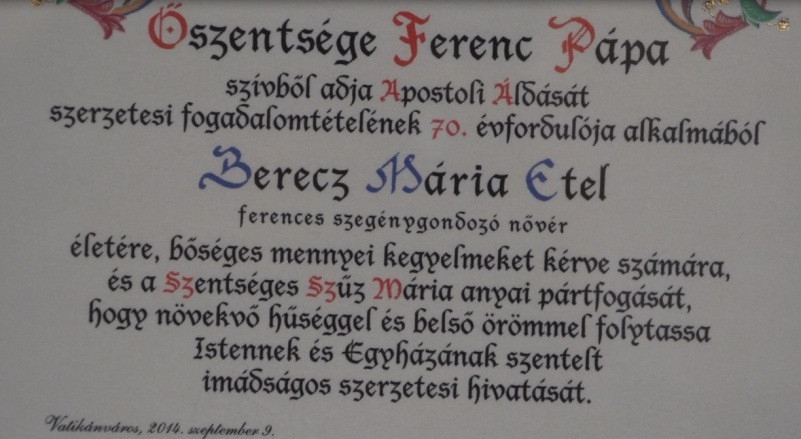 Őszentsége Ferenc Pápa
szívből adja Apostoli Áldását
szerzetesi fogadalomtételének 70. évfordulója alkalmából
Berecz Mária Etel
ferences szegénygondozó nővér
életére, bőséges mennyei kegyelmeket kérve számára,
és a Szentséges Szűz Mária anyai pártfogását,
hogy növekvő hűséggel és belső örömmel folytassa
Istennek és Egyházának szentelt
imádságos szerzetesi hivatását.
Vatikánváros, 2014. szeptember 9.